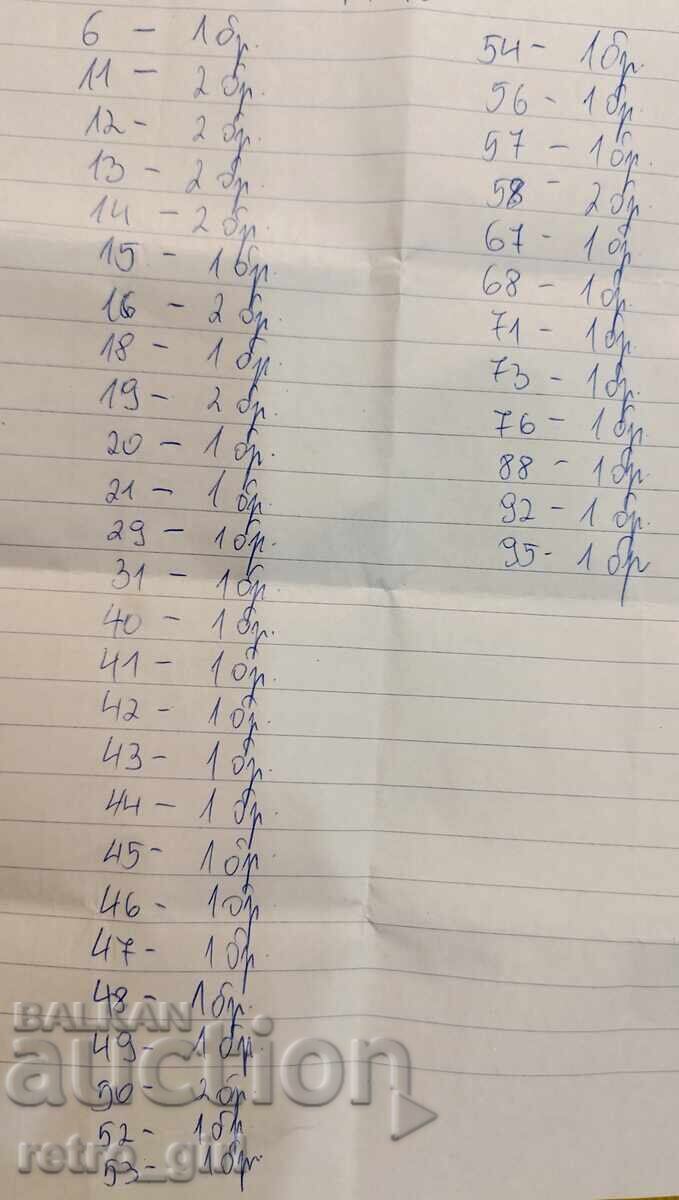 6 - 1 бр.
11 - 2 бр.
12 - 2 бр.
13 - 2 бр.
14 - 2 бр.
15 - 1 бр.
16 - 2 бр.
18 - 1 бр.
19 - 2 бр.
20 - 1 бр.
21 - 1 бр.
29 - 1 бр.
31 - 1 бр.
40 - 1 бр.
41 - 1 бр.
42 - 1 бр.
43 - 1 бр.
44 - 1 бр.
45 - 1 бр.
46 - 1 бр.
47 - 1 бр.
48 - 1 бр.
49 - 1 бр.
50 - 2 бр.
52 - 1 бр.
53 - 1 бр.
54 - 1 бр.
56 - 1 бр.
57 - 1 бр.
58 - 2 бр.
67 - 1 бр.
68 - 1 бр.
71 - 1 бр.
73 - 1 бр.
76 - 1 бр.
88 - 1 бр.
92 - 1 бр.
95 - 1 бр
BALKAN
auction
retro_girl